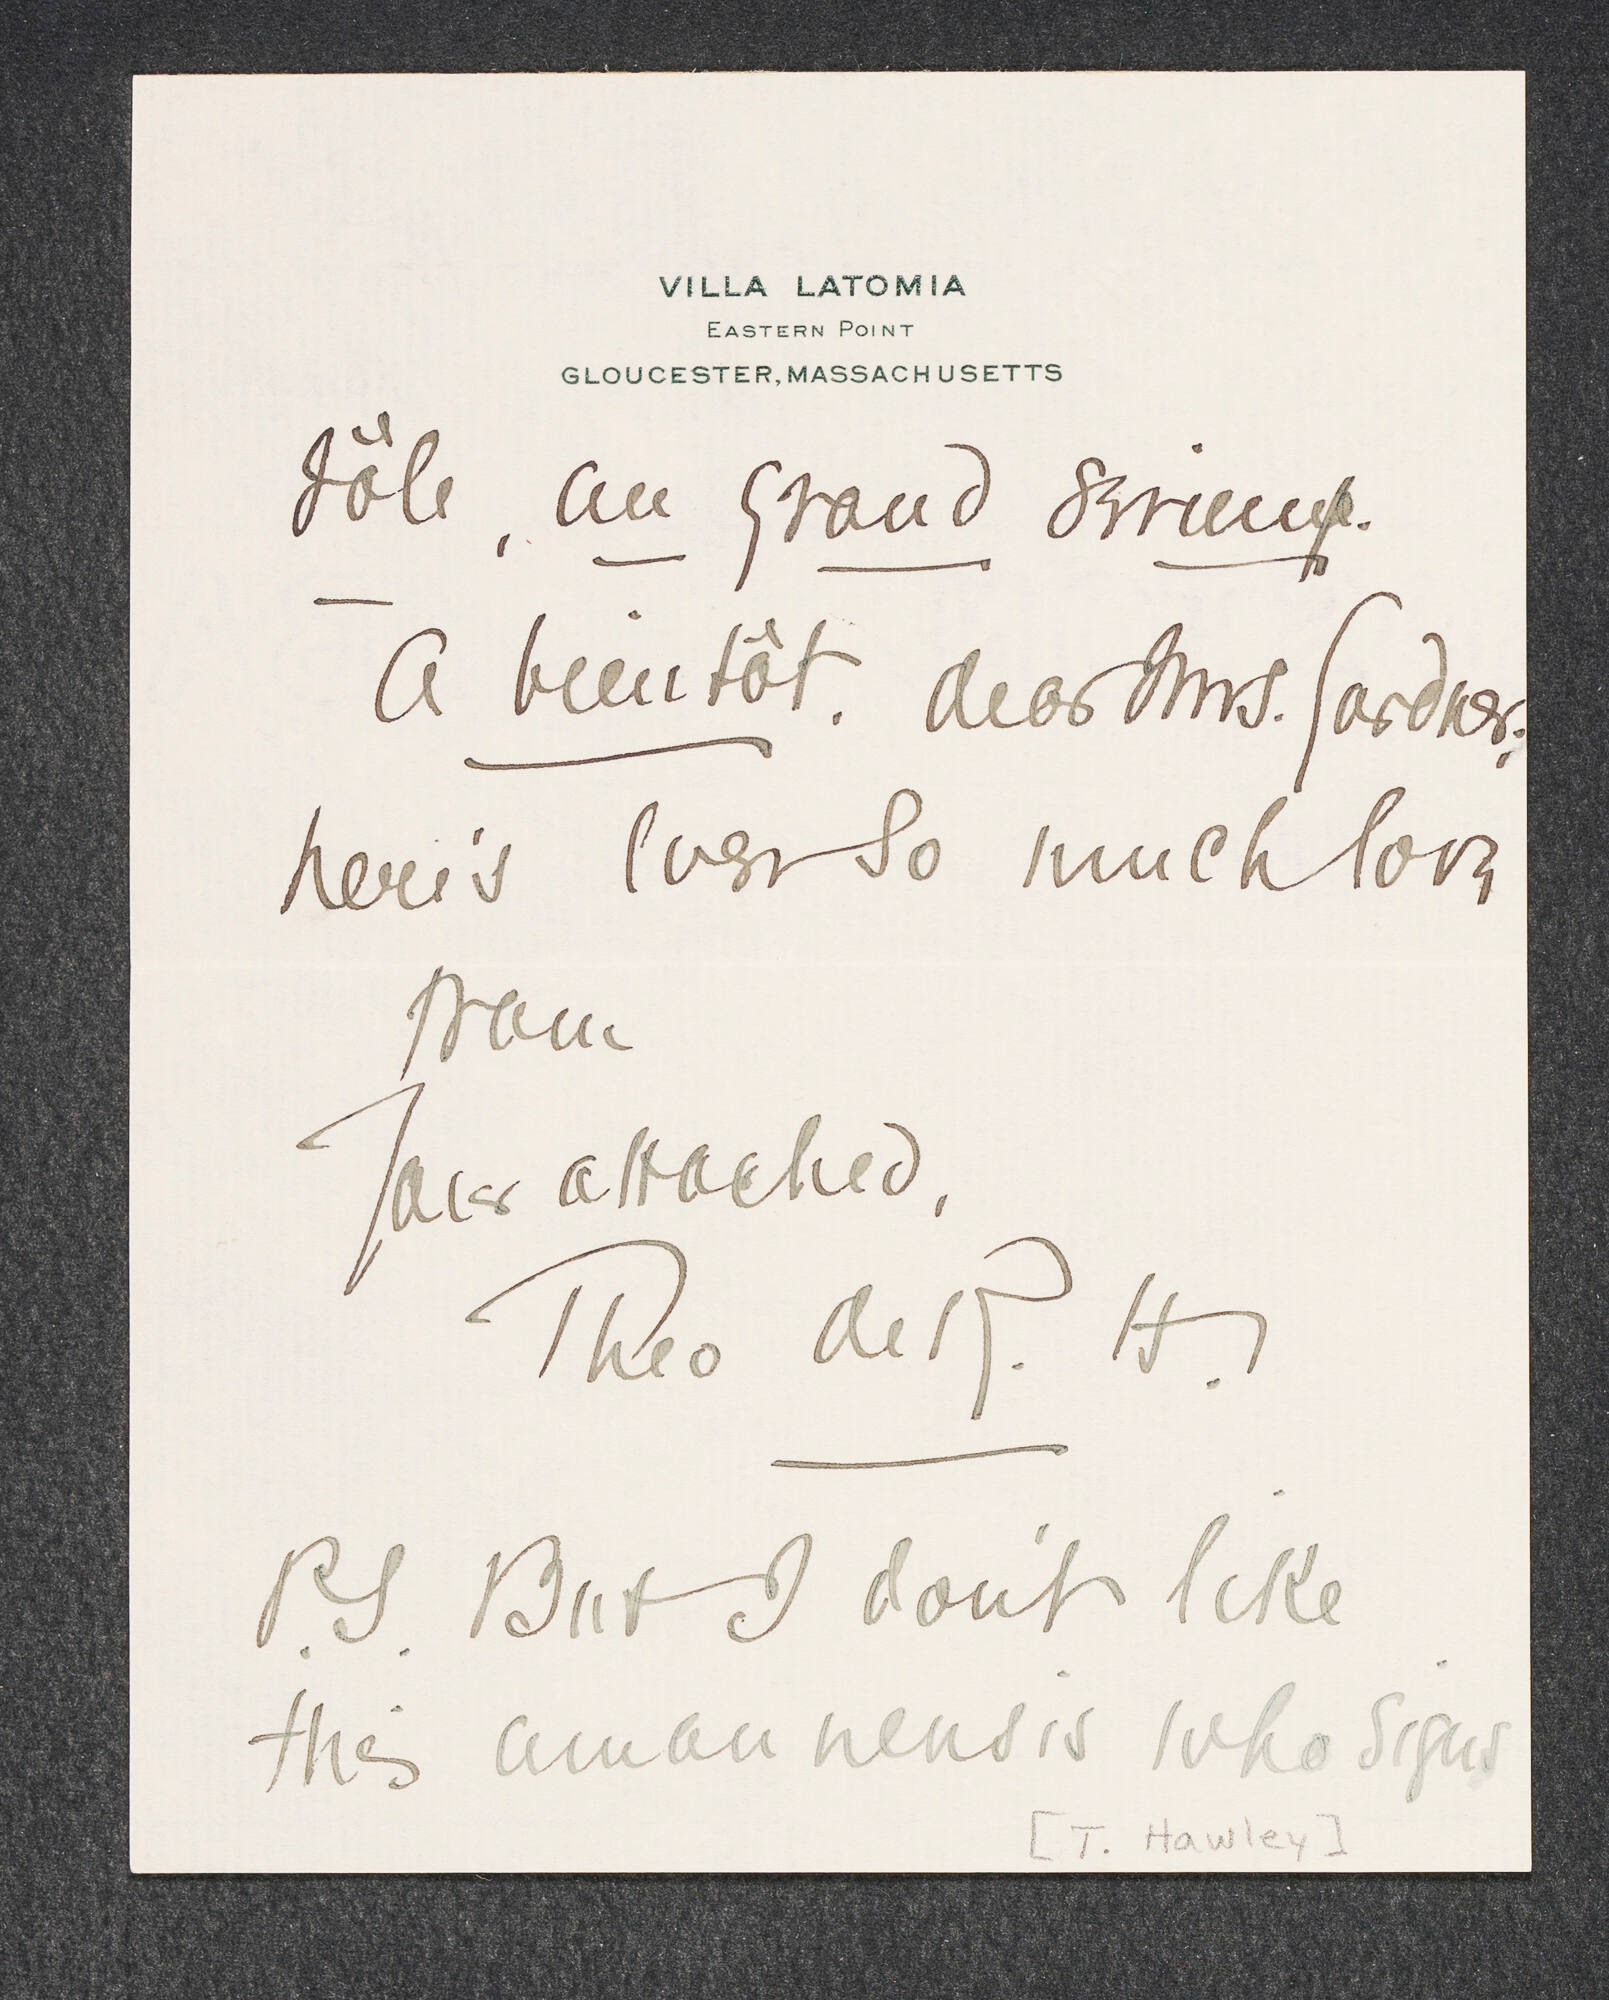 VILLA LATOMIA
EASTERN POINT
GLOUCESTER, MASSACHUSETTS
rôle, au grand sérieux.
A bientôt, dear Mrs. Gardner;
here's ever so much love
from
Your attached,
Theo de K. H.
P.S. But I don't like
this amanuensis who signs
[T. Hawley]